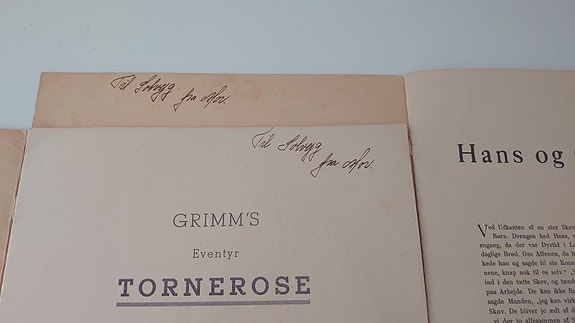 Til Solvejg
fra
Til Solvejg
fra
GRIMM'S
Eventyr
TORNEROSE
Hans og
Ved Udkanten af en stor Skov
Børn. Drengen hed Hans,
engang, da der var Dyrtid i
daglige Brød. Om Aftenen, da h
kede han og sagde til sin Kone
nene, knap nok til os selv."
ind i den tætte Skov, og tænd
paa Arbejde. De kan ikke fin
sagde Manden, „jeg kan virk
Skoven. De bliver jo ædt af d
vi der jo allesammen af S